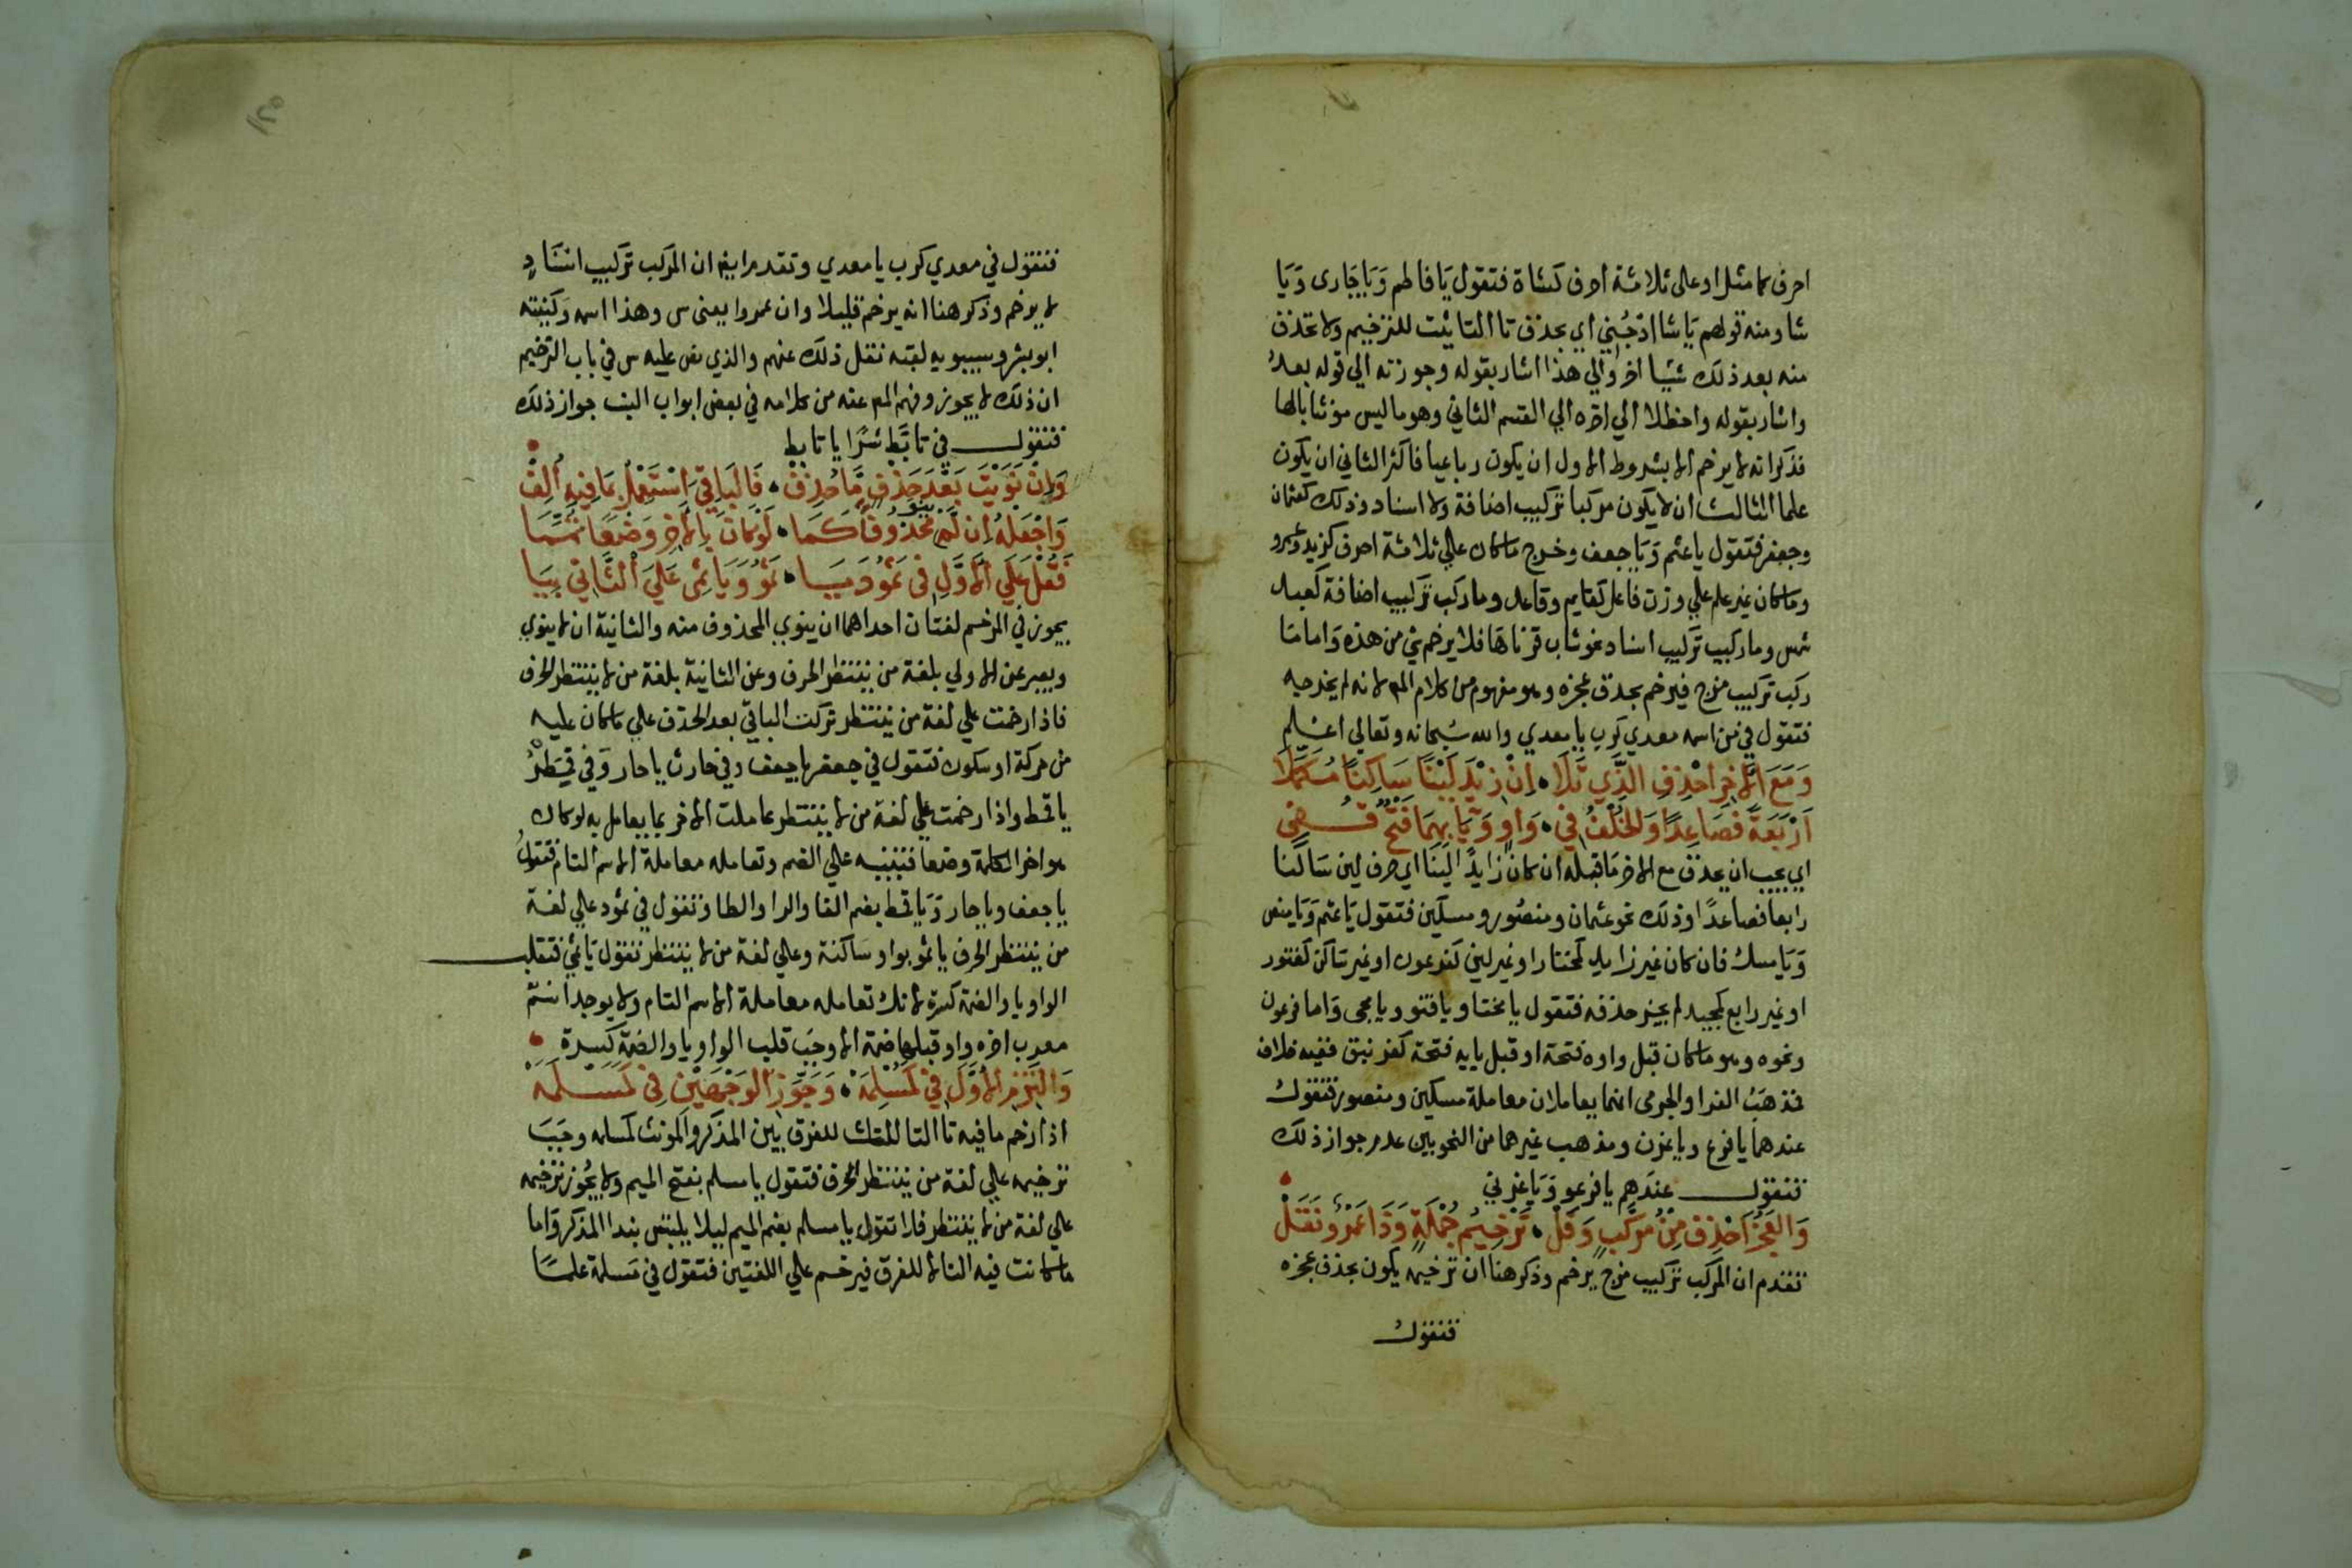 احرف كما مثل او على ثلاثة احرف كشاة فتقول يا فاطم ويا جارى ويا
شا ومنه قولهم يا شا ادجني اي بحذف تا التانيث للترخيم ولا تحذف
منه بعد ذلك شيا اخر والي هذا اشار بقوله وجوزته الي قوله بعد
واشار بقوله واحظلا الي اخره الي القسم الثاني وهو ما ليس مؤنثا بالها
فذكر انه لا يرخم الا بشروط الاول ان يكون رباعيا فاكثر الثاني ان يكون
علما الثالث ان لا يكون مركبا تركيب اضافة ولا اسناد وذلك كعثمان
وجعفر فتقول يا عثم ويا جعف وخرج ما كان علي ثلاثة احرف كزيد وعمرو
وما كان غير علم علي وزن فاعل كقايم وقاعد وما ركب تركيب اضافة كعبد
شمس وما ركب تركيب اسناد نحو شاب قرناها فلا يرخم شي من هذه واما ما
ركب تركيب مزج فيرخم بحذف عجزه وهو مفهوم من كلام المص لانه لم يخرجه
فتقول في من اسمه معدي كرب يا معدي والله سبحانه وتعالي اعلم
ومع الاخر احذف الذي تلا ، ان زيد لينا ساكنا مكملا
اربعة فصاعدا والخلف في ، واو ويا بهما فتح قفي
اي يجب ان يحذف مع الاخر ما قبله ان كان زايدا لينا اي حرف لين ساكنا
رابعا فصاعدا وذلك نحو عثمان ومنصور ومسكين فتقول يا عثم ويا منص
ويا مسك فان كان غير زايد كمختار او غير لين كفرعون او غير ساكن كقنور
او غير رابع كمجيد لم يجز حذفه فتقول يا مختا ويا قنو ويا مجى واما فرعون
ونحوه وهو ما كان قبل واوه فتحة او قبل يايه فتحة كغرنيق ففيه خلاف
فمذهب الفرا والجرمى انهما يعاملان معاملة مسكين ومنصور فتقول
عندهما يا فرع ويا غرن ومذهب غيرهما من النحويين عدم جواز ذلك
فتقول عندهم يا فرعو ويا غرني
والعجز احذف من مركب وقل ، ترخيم جملة وذا عمرو نقل
تقدم ان المركب تركيب مزج يرخم وذكر هنا ان ترخيمه يكون بحذف عجزه
فتقول
فتقول في معدي كرب يا معدي وتقدم ايض ان المركب تركيب اسناد
لا يرخم وذكر هنا انه يرخم قليلا وان عمروا يعنى س وهذا اسمه وكنيته
ابو بشر وسيبويه لقبه نقل ذلك عنهم والذي نص عليه س في باب الترخيم
ان ذلك لا يجوز وفهم المص عنه من كلامه في بعض ابواب النسب جواز ذلك
فتقول في تابط شرا يا تابط
وان نويت بعد حذف ما حذف ، فالباقي استعمل بما فيه الف
واجعله ان لم تنو محذوفا كما ، لو كان بالاخر وضعا تمما
فقل على الاول في ثمود يا ، ثمو ويا ثمى علي الثاني بيا
يجوز في المرخم لغتان احداهما ان ينوي المحذوف منه والثانية ان لا ينوي
ويعبر عن الاولي بلغة من ينتظر الحرف وعن الثانية بلغة من لا ينتظر الحرف
فاذا رخمت علي لغة من ينتظر تركت الباقي بعد الحذف علي ما كان عليه
من حركة او سكون فتقول في جعفر يا جعف وفي حارث يا حار وفي قمطر
يا قمط واذا رخمت علي لغة من لا ينتظر عاملت الاخر بما يعامل به لو كان
هو اخر الكلمة وضعا فتبنيه علي الضم وتعامله معاملة الاسم التام فتقول
يا جعف ويا حار ويا قمط بضم الفا والرا والطا وتقول في ثمود علي لغة
من ينتظر الحرف يا ثمو بواو ساكنة وعلي لغة من لا ينتظر تقول يا ثمي فتقلب
الواو يا والضمة كسرة لانك تعامله معاملة الاسم التام ولا يوجد اسم
معرب اخره واو قبلها ضمة الا وجب قلب الواو يا والضمة كسرة
والتزم الاول في كمسلمة ، وجوز الوجهين في كمسلمه
اذا رخم ما فيه تا التانيث للفرق بين المذكر والمونث كمسلمه وجب
ترخيمه علي لغة من ينتظر الحرف فتقول يا مسلم بفتح الميم ولا يجوز ترخيمه
علي لغة من لا ينتظر فلا تقول يا مسلم بضم الميم ليلا يلتبس بندا المذكر واما
ما كانت فيه التا لا للفرق فيرخم علي اللغتين فتقول في مسلمة علما